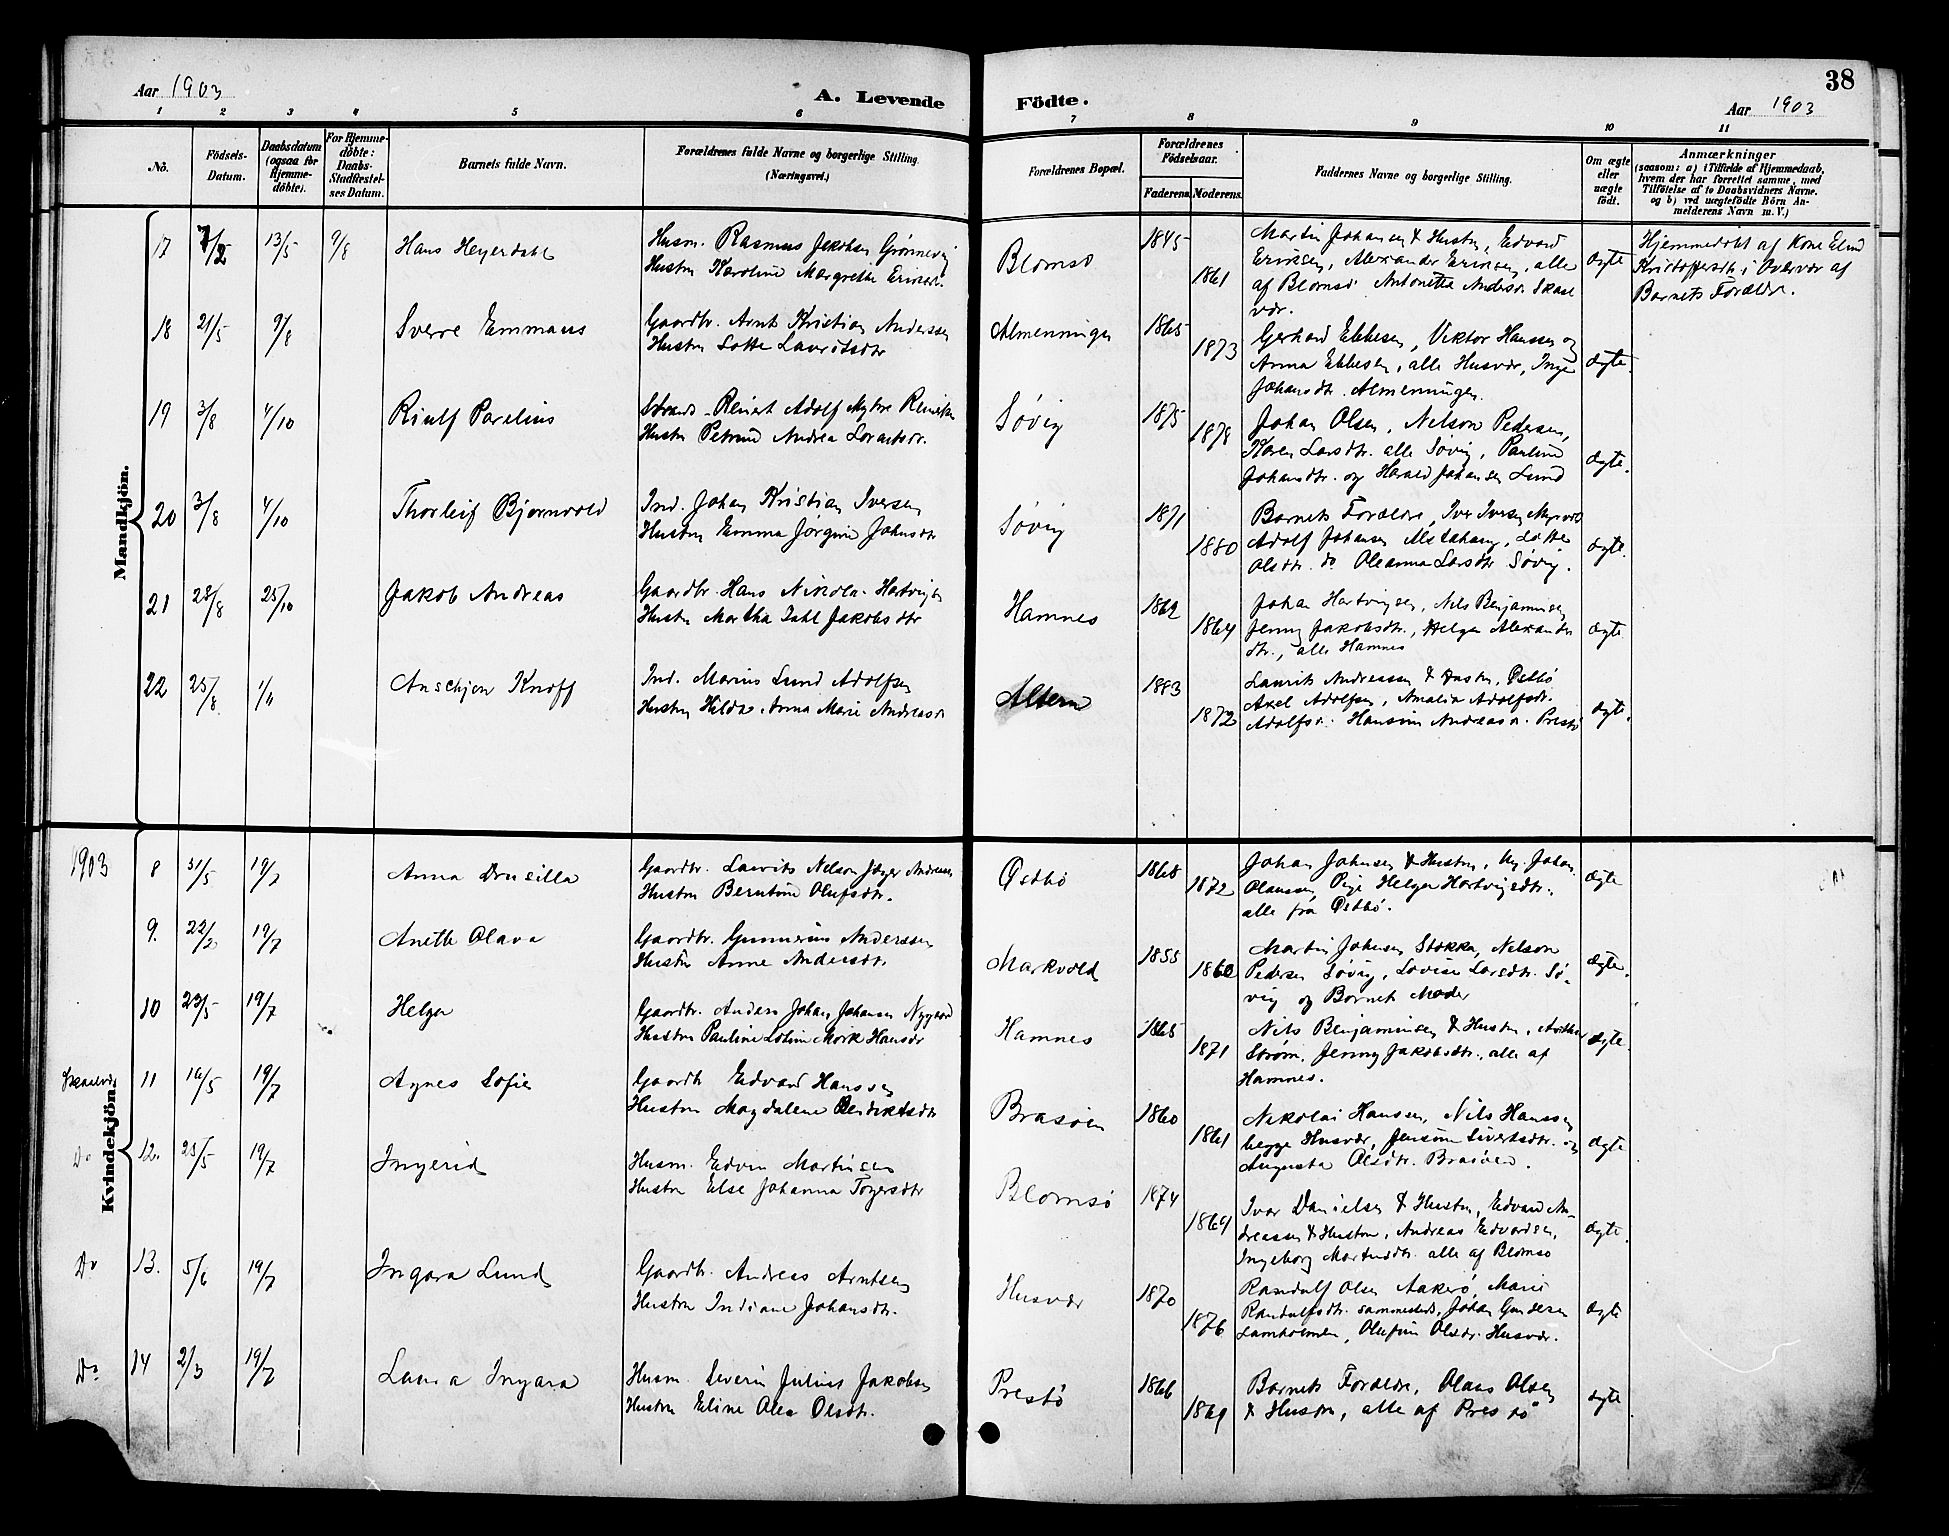 38
Aar 1903
A. Levende Födte.
Aar 1903
1 2 3 4 5 6 7 8 9 10 11
No.
Födsels-Datum.
Daabsdatum (ogsaa for Hjemme-döbte).
For Hjemme-döbte: Daabs-Stadfæstel-ses Datum.
Barnets fulde Navn.
Forældrenes fulde Navne og borgerlige Stilling. (Næringsvei.)
Forældrenes Bopæl.
Forældrenes Födselsaar.
Faderens. Moderens.
Faddernes Navne og borgerlige Stilling.
Om ægte eller uægte födt.
Anmærkninger
(saasom: a) i Tilfælde af Hjemmedaab,
hvem der har forrettet samme, med
Tilföielse af to Daabsvidners Navne.
og b) ved uægtefödte Börn An-
melderens Navn m. V.)
Mandkjön.
17 7/2 13/5 9/8 Hans Heyerdahl
Husm. Rasmus Jakobsen Grønnevig
Hustru Karoline Margrethe Eriksd.
Blomsø 1845 1861
Martin Johansen & Hustru, Edvard
Eriksen, Alexander Eriksen, alle
af Blomsø Antonetta Andersdr. Skaal
vær.
ægte
Hjemmedøbt af Kone Elen
Kristoffersdtr. i Overvær af
Barnets Forældre.
18 21/5 9/8 Sverre Emmaus
Gaardbr. Arnt Kristian Anderssen
Hustru Lotte Lauritsdtr
Almenningen 1865 1873
Gerhard Ebbesen, Viktor Hanssen og
Anna Ebbesen, alle Husvær, Inge
Johansdtr. Almenningen.
ægte.
19 3/8 4/10 Riulf Parelius
Hustru Petrine Andrea
Søvig 1875 1878
Johan Olsen, Nelson Pedersen,
Karen Larsdtr. alle Søvig, Pauline
Johansdtr. og Harald Johansen Lund
ægte.
20 3/8 4/10 Thorleif Bjornvold
Ind. Johan Kristian Iversen
Hustru Emma Jørgine Johnsdtr
Søvig 1871 1880
Barnets Forældre, Iver Iversen
Adolf Johansen Alstahaug, Lotte
Olsdtr. do Oleanna Larsdtr Søvig.
ægte.
21 28/8 25/10 Jakob Andreas
Gaardbr. Hans Nikolai Hartvigsen
Hustru Martha Dahl Jakobsdtr
Hamnes 1862 1864
Johan Hartvigsen, Nils Benjaminsen
Jenny Jakobsdtr., Helga Alexander
dtr., alle Hamnes
ægte
22 25/8 1/11 Anschjon Knoff
Ind. Marius Lund Adolfsen
Hustru Hilda Anna Marie Andreasdr
Altern 1883 1872
Laurits Andreassen & Hustru, Østbø
Axel Adolfsen, Amalia Adolfsdr.
Adolfsdr. Hansine Andreasdr. Prestø
ægte.
Kvindekjön.
1903 8 31/5 19/7 Anna Drusilla
Gaardbr. Lauvits Nelson Jæger Andreas
Hustru Berntine Olufsdtr.
Østbø 1868 1872
Johan Johnsen & Hustru, Ug. Johan
Olaussen, Pige Helga Hartvigsdtr.
alle fra Østbø.
ægte
9. 22/2 19/7 Anette Olava
Gaardbr. Gunnerius Anderssen
Hustru Anne Andersdtr.
Markvold 1855 1860
Martin Johnsen Stokka, Nelson
Pedersen Søvig, Lovise Larsdtr. Sø-
vig og Barnets Moder
ægte.
10 23/5 19/7 Helga
Gaardbr. Anders Johan Johansen Nygaard
Hustru Pauline Lotine Mørk Hansdr
Hamnes 1865 1871
Nils Benjaminsen & Hustru,
Strøm, Jenny Jakobsdtr., alle af
Hamnes.
ægte.
11 16/5 19/7 Agnes Sofie
Gaardb Edvard Hanssen
Hustru Magdalene Bendiktsdtr
Brasøen 1860 1861
Nikolai Hanssen, Nils Hanssen
begge Husvær, Jensine Sivertsdtr. og
Augusta Olsdtr. Brasøen.
ægte
Do 12. 25/5 19/7 Ingerid
Husm. Edvin Martinsen
Hustru Else Johanna Torgersdtr
Blomsø 1874 1864
Ivar Danielsen & Hustru, Edvard An-
dreassen & Hustru, Andreas Edvardsen,
Ingeborg Martinsdtr. alle af Blomsø
ægte.
Do 13. 5/6 19/7 Ingara Lund
Gaardbr. Andreas Arntsen
Hustru Indiane Johansdtr.
Husvær 1870 1876
Randulf Olsen Aakerø, Marie
Randulfsdtr. sammesteds, Johan Gundersen
Lamholmen, Olufine Olsdr. Husvær.
ægte
Do. 14 2/3 19/7 Laura Ingara
Husm. Severin Julius Jakobsen
Hustru Eline Olea Olsdtr.
Prestø 1866 1869
Barnets Forældre, Olaus Olsen
& Hustru, alle af Prestø
ægte